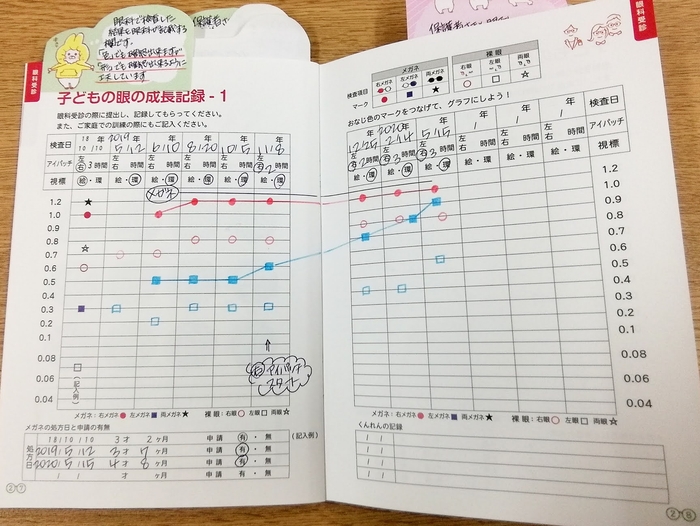 眼科で検査した
結果を眼科が記載する
欄です。
保護者さ
眼科受診
子どもの眼の成長記録 - 1
眼科受診の際に提出し、記録してもらってください。
また、ご家庭での訓練の際にもご記入ください。
検査日 18年 10/10 2019年 5/12 年 6/10 年 8/20 年 10/5 年 11/8
アイパッチ 左右 3時間 左右 時間 左右 時間 左右 時間 左右 時間 左右 2時間
視標 絵・環 絵・環 絵・環 絵・環 絵・環 絵・環
メガネ
1.2
1.0
0.9
0.8
0.7
0.6
0.5
0.4
0.3
0.2
0.1
0.08
0.06
0.04
(記入例)
アイパッチ
スタート
メガネ：右メガネ 左メガネ 両メガネ 裸眼：右眼 左眼 両眼
メガネの処方日と申請の有無
処方日
18/10/10 3才 2ヶ月 申請 有・無 (記入例)
2019/5/12 3才 7ヶ月 申請 有・無
2020/5/15 4才 8ヶ月 申請 有・無
/ / 才 ヶ月 申請 有・無
27
眼科受診
メガネ 裸眼
検査項目 右メガネ 左メガネ 両メガネ 右眼 左眼 両眼
マーク
おなじ色のマークをつなげて、グラフにしよう！
年 12/25 2020年 2/14 年 5/15 年 / 年 / 年 / 検査日
左右 2時間 左右 3時間 左右 3時間 左右 時間 左右 時間 左右 時間 アイパッチ
絵・環 絵・環 絵・環 絵・環 絵・環 絵・環 視標
1.2
1.0
0.9
0.8
0.7
0.6
0.5
0.4
0.3
0.2
0.1
0.08
0.06
0.04
メガネ：右メガネ 左メガネ 両メガネ 裸眼：右眼 左眼 両眼
くんれんの記録
/ /
/ /
/ /
/ /
28